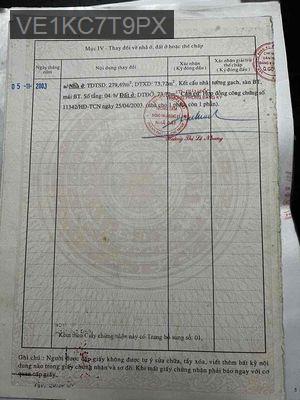 VE1KC7T9PX
Mục IV - Thay đổi về nhà ở, đất ở hoặc thế chấp
Ngày tháng năm
Nội dung thay đổi
Xác nhận thay đổi (Ký đóng dấu)
Xác nhận giải trừ thế chấp (Ký đóng dấu)
05-11-2003
a/ Nhà ở: TDTSD: 279,69m², DTXD: 73,72m², Kết cấu nhà: tường gạch, sàn BT,
mái BT, Số tầng: 04. b/ Đất ở: DTĐO: 73,
hợp đồng công chứng số
11342/HĐ-TCN ngày 25/04/2003. (nhà cho 1 phần còn 1 phần).
Hoàng Thị Lệ Nhung
Kèm theo Giấy chứng nhận này có Trang bổ sung số: 01.
Ghi chú: Người được cấp giấy không được tự ý sửa chữa, tẩy xóa, viết thêm bất kỳ nội
dung nào trong giấy chứng nhận và sơ đồ. Khi mất giấy chứng nhận phải báo ngay với cơ
quan cấp giấy.